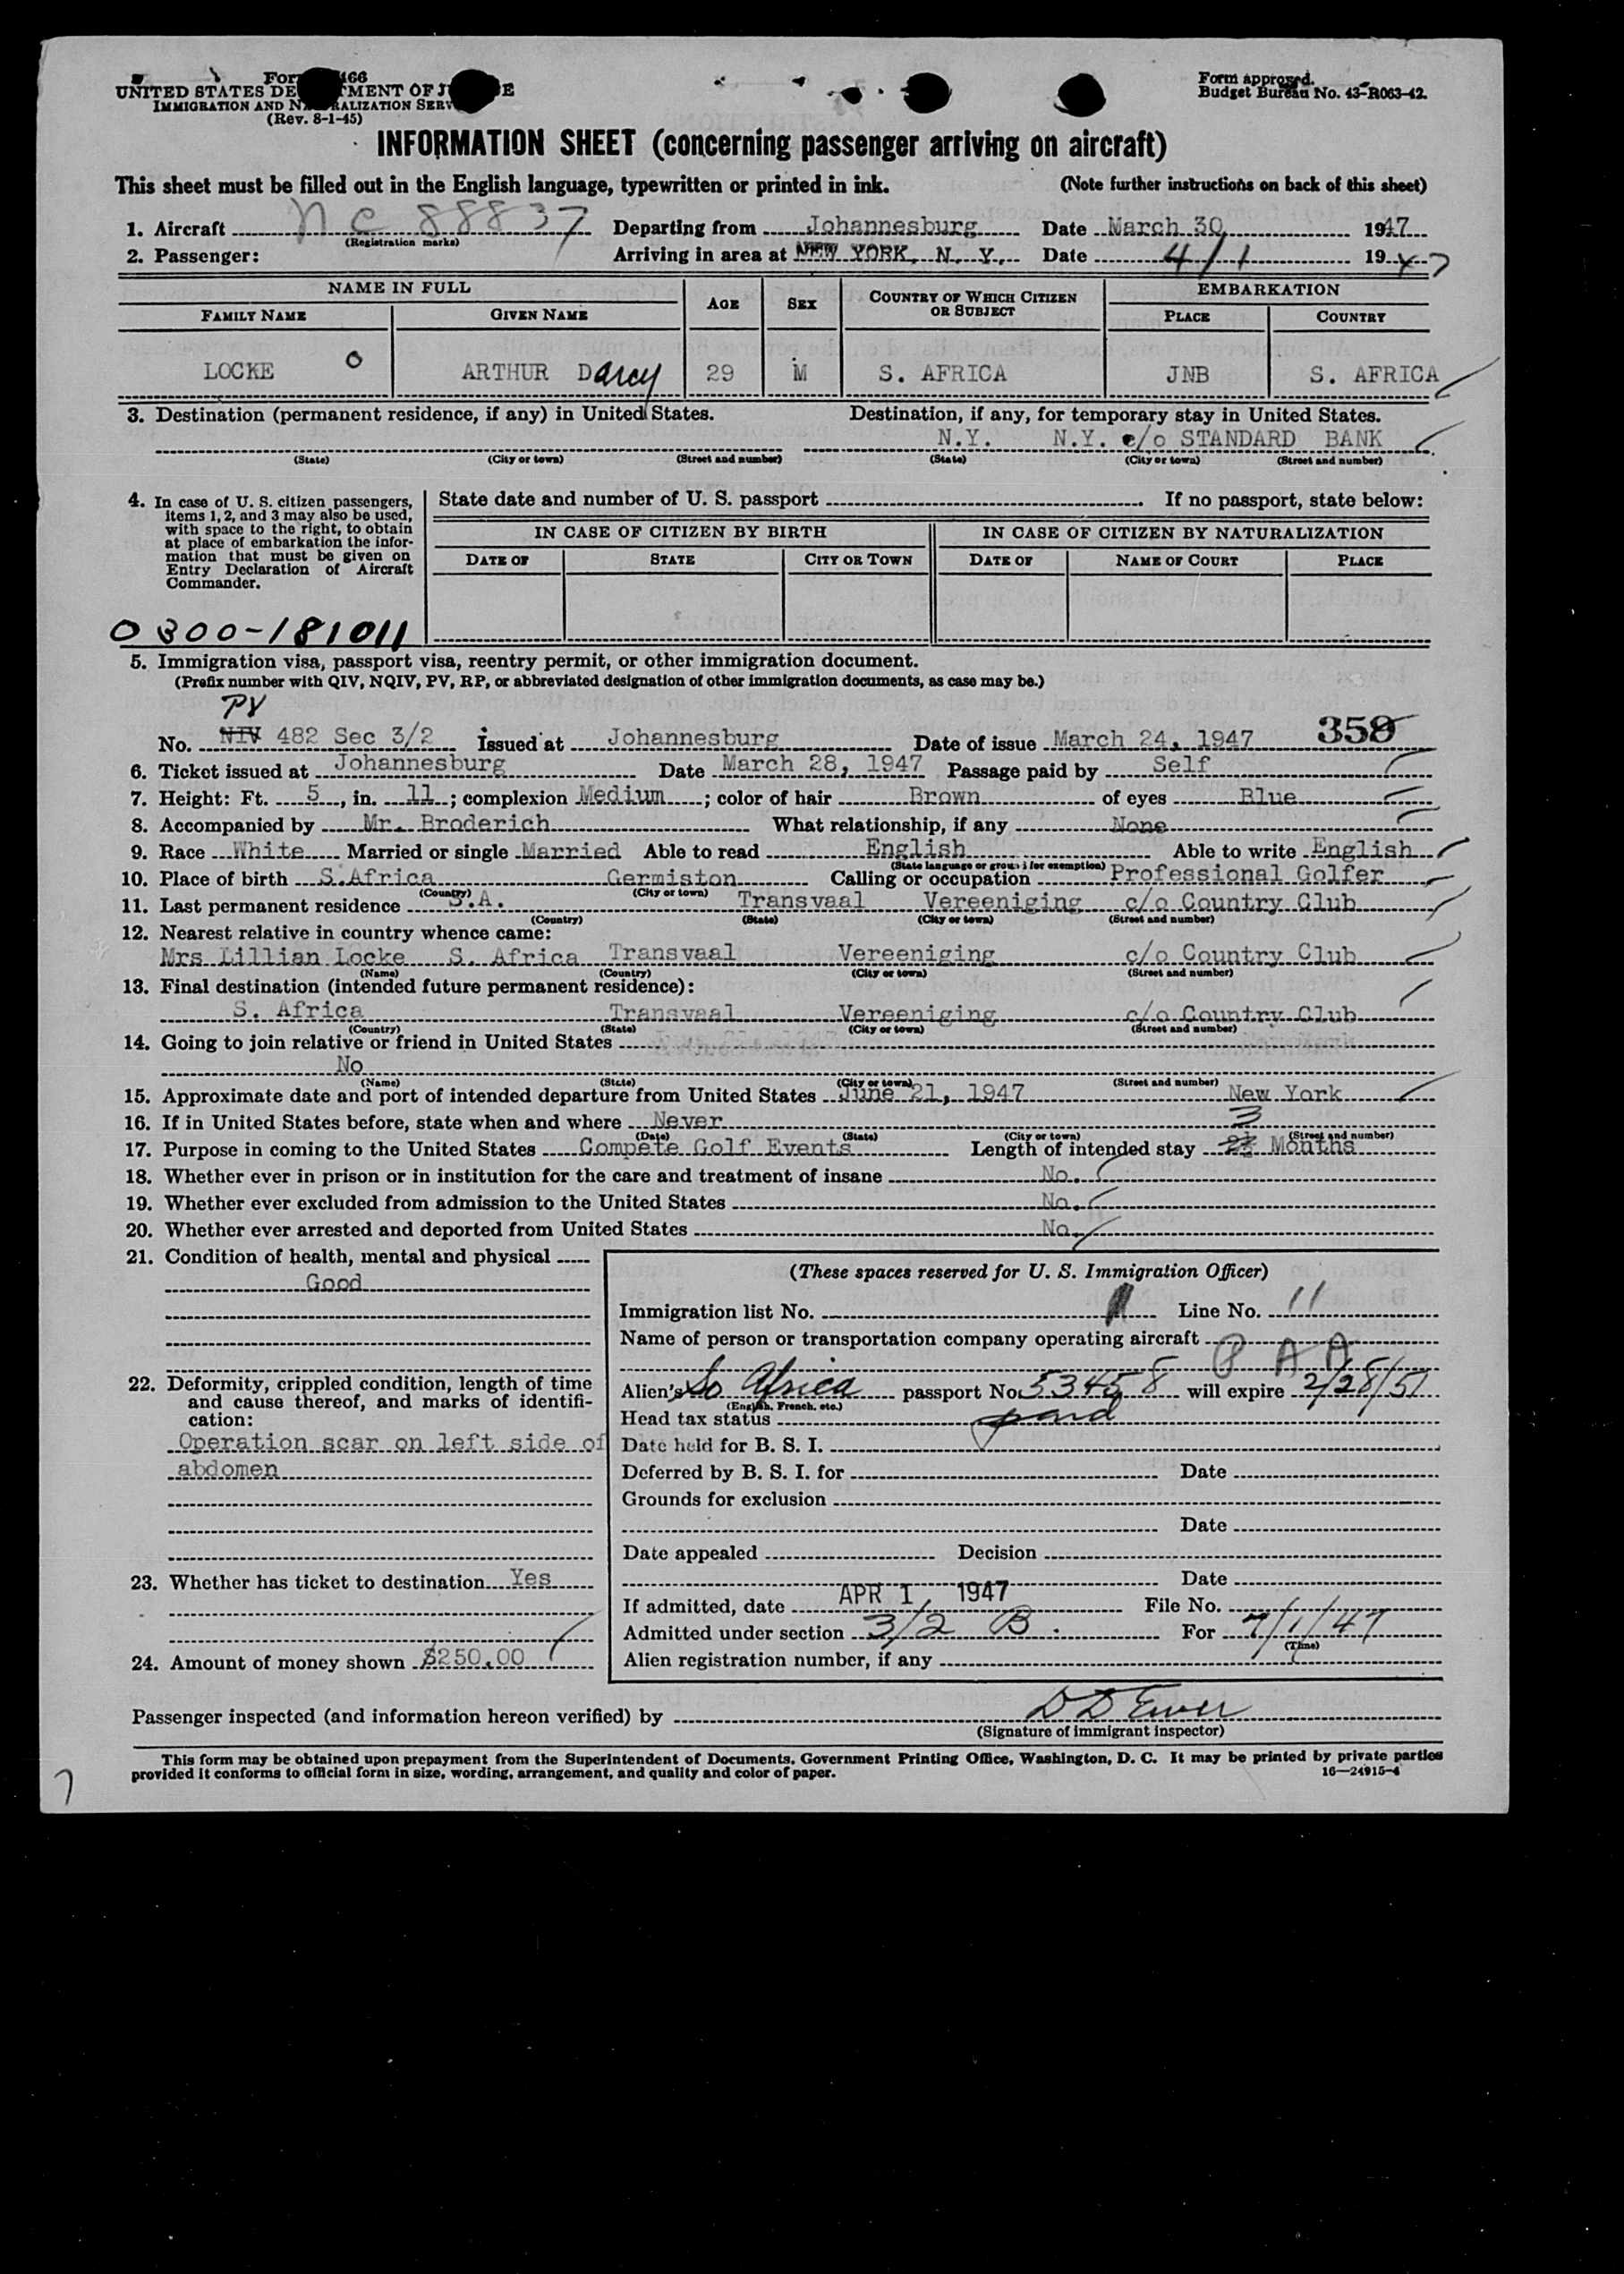 For 466
UNITED STATES DE MENT OF J E
IMMIGRATION AND N RALIZATION SERV
(Rev. 8-1-45)
Form approved.
Budget Bureau No. 43-R063-42.
INFORMATION SHEET (concerning passenger arriving on aircraft)
This sheet must be filled out in the English language, typewritten or printed in ink. (Note further instructions on back of this sheet)
1. Aircraft NC 88837 Departing from Johannesburg Date March 30 1947
(Registration marks)
2. Passenger: Arriving in area at NEW YORK, N. Y. Date 4/1 1947
NAME IN FULL AGE SEX COUNTRY OF WHICH CITIZEN OR SUBJECT EMBARKATION
FAMILY NAME GIVEN NAME PLACE COUNTRY
LOCKE O ARTHUR Darcy 29 M S. AFRICA JNB S. AFRICA
3. Destination (permanent residence, if any) in United States. Destination, if any, for temporary stay in United States.
N.Y. N.Y. c/o STANDARD BANK
(State) (City or town) (Street and number) (State) (City or town) (Street and number)
4. In case of U. S. citizen passengers, items 1, 2, and 3 may also be used, with space to the right, to obtain at place of embarkation the information that must be given on Entry Declaration of Aircraft Commander.
State date and number of U. S. passport If no passport, state below:
IN CASE OF CITIZEN BY BIRTH IN CASE OF CITIZEN BY NATURALIZATION
DATE OF STATE CITY OR TOWN DATE OF NAME OF COURT PLACE
0300-181011
5. Immigration visa, passport visa, reentry permit, or other immigration document.
(Prefix number with QIV, NQIV, PV, RP, or abbreviated designation of other immigration documents, as case may be.)
PV
No. NIV 482 Sec 3/2 Issued at Johannesburg Date of issue March 24, 1947 358
6. Ticket issued at Johannesburg Date March 28, 1947 Passage paid by Self
7. Height: Ft. 5, in. 11; complexion Medium; color of hair Brown of eyes Blue
8. Accompanied by Mr. Broderich What relationship, if any None
9. Race White Married or single Married Able to read English Able to write English
(State language or ground for exemption)
10. Place of birth S.Africa Germiston Calling or occupation Professional Golfer
(Country) (City or town)
11. Last permanent residence S.A. Transvaal Vereeniging c/o Country Club
(Country) (State) (City or town) (Street and number)
12. Nearest relative in country whence came:
Mrs Lillian Locke S. Africa Transvaal Vereeniging c/o Country Club
(Name) (Country) (City or town) (Street and number)
13. Final destination (intended future permanent residence):
S. Africa Transvaal Vereeniging c/o Country Club
(Country) (State) (City or town) (Street and number)
14. Going to join relative or friend in United States
No
(Name) (State) (City or town) (Street and number)
15. Approximate date and port of intended departure from United States June 21, 1947 New York
16. If in United States before, state when and where Never
(Date) (State) (City or town) (Street and number)
3
17. Purpose in coming to the United States Compete Golf Events Length of intended stay Months
18. Whether ever in prison or in institution for the care and treatment of insane No.
19. Whether ever excluded from admission to the United States No.
20. Whether ever arrested and deported from United States No.
21. Condition of health, mental and physical
Good
22. Deformity, crippled condition, length of time and cause thereof, and marks of identification:
Operation scar on left side of
abdomen
23. Whether has ticket to destination Yes
24. Amount of money shown $250.00
(These spaces reserved for U. S. Immigration Officer)
Immigration list No. Line No. 11
Name of person or transportation company operating aircraft
P A A
Alien's So Africa passport No. 53458 will expire 2/28/51
(English, French, etc.)
Head tax status paid
Date held for B. S. I.
Deferred by B. S. I. for Date
Grounds for exclusion
Date
Date appealed Decision
Date
If admitted, date APR 1 1947 File No.
Admitted under section 3/2 B For 7/1/47
(Time)
Alien registration number, if any
Passenger inspected (and information hereon verified) by D D Ewer
(Signature of immigrant inspector)
This form may be obtained upon prepayment from the Superintendent of Documents, Government Printing Office, Washington, D. C. It may be printed by private parties
provided it conforms to official form in size, wording, arrangement, and quality and color of paper. 16—24915-4
7